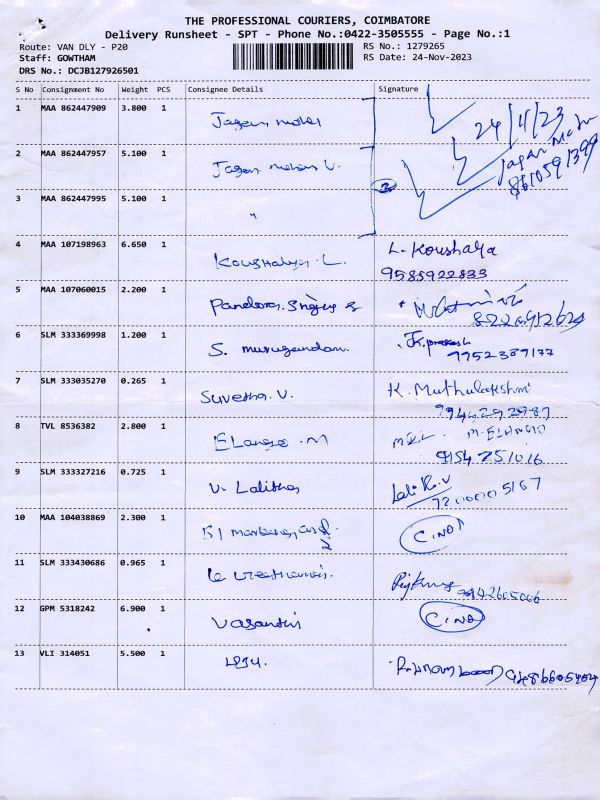 THE PROFESSIONAL COURIERS, COIMBATORE
Delivery Runsheet - SPT - Phone No.:0422-3505555 - Page No.:1
Route: VAN DLY - P20
RS No.: 1279265
Staff: GOWTHAM
RS Date: 24-Nov-2023
DRS No.: DCJB127926501
S No Consignment No Weight PCS Consignee Details Signature
1 MAA 862447909 3.800 1 Jagan mohan 24/11/23
2 MAA 862447957 5.100 1 Jagan mohan V. Jagan Mohan
3 MAA 862447995 5.100 1 "
4 MAA 107198963 6.650 1 Koushalya. L. L. Koushalya
9585922833
5 MAA 107060015 2.200 1 Pandora
6 SLM 333369998 1.200 1 S. murugandam. K. prakash
9952389177
7 SLM 333035270 0.265 1 Suvetha. V. K. Muthulakshmi
8 TVL 8536382 2.800 1 M
9154251016
9 SLM 333327216 0.725 1 V. Lalitha
7200005167
10 MAA 104038869 2.300 1
11 SLM 333430686 0.965 1
9942605006
12 GPM 5318242 6.900 1 Vasanthi
13 VLI 314051 5.500 1